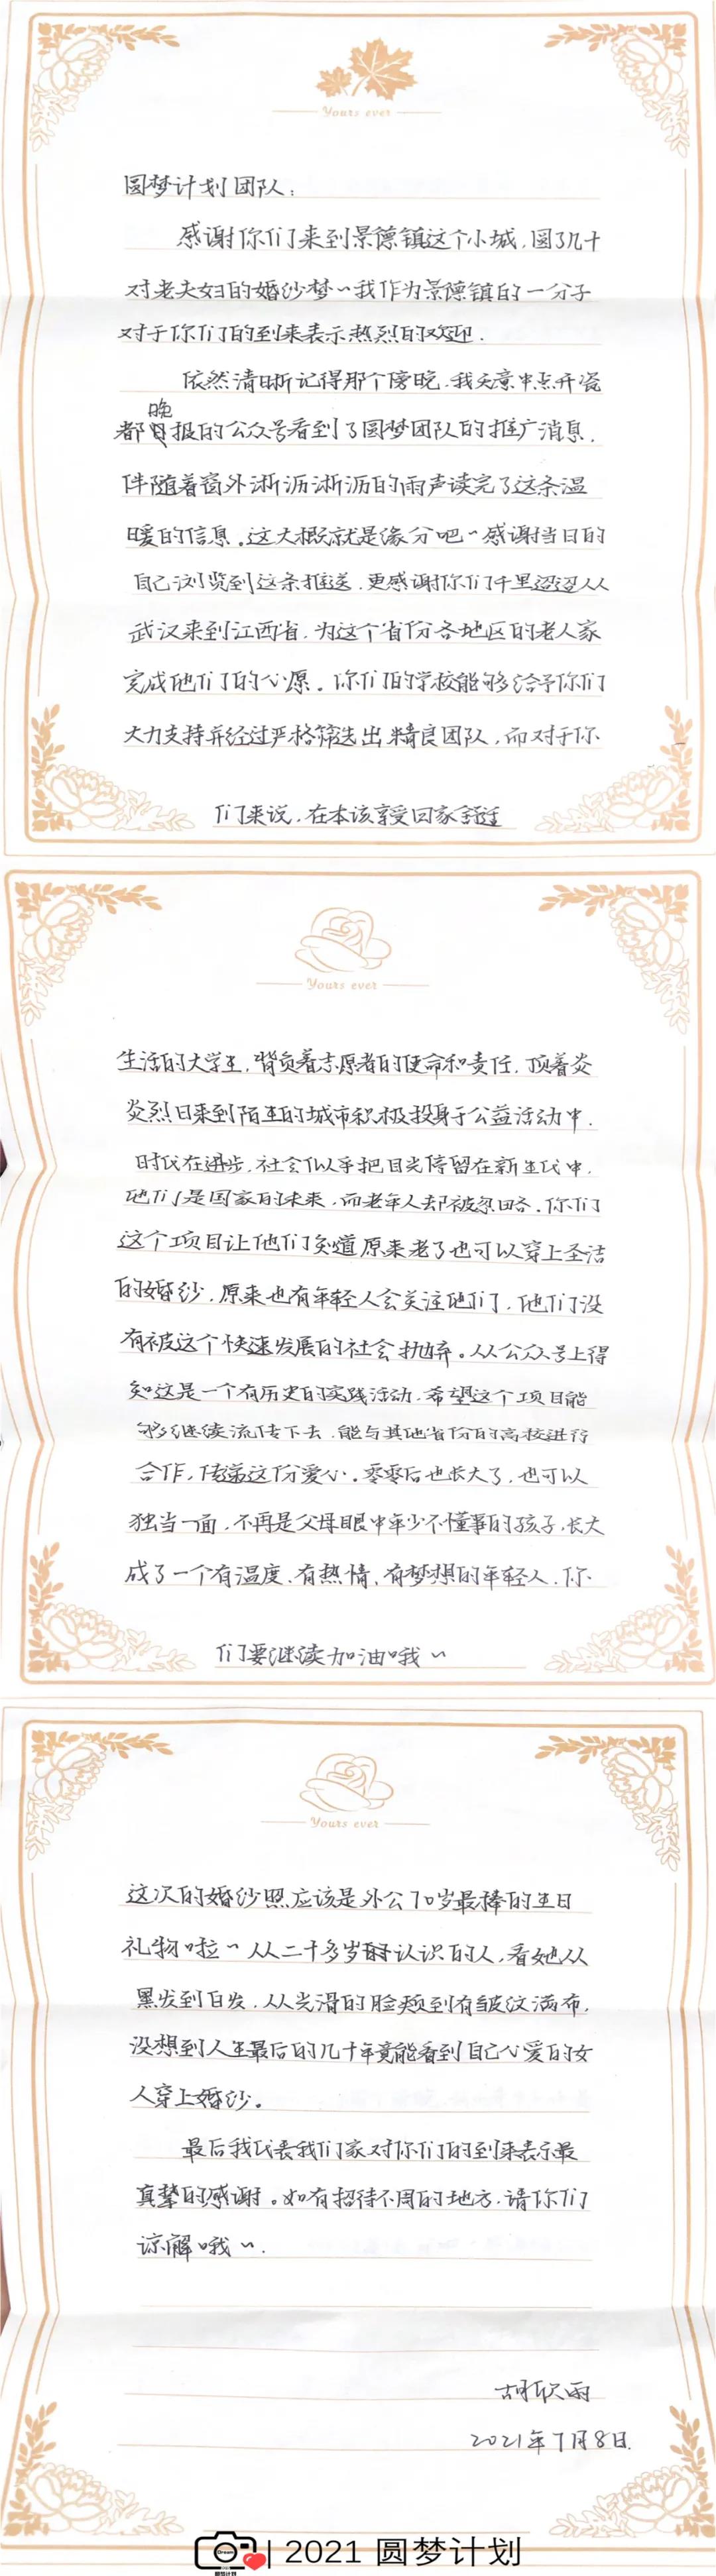 Yours ever
圆梦计划团队：
感谢你们来到景德镇这个小城，圆了几十
对老夫妇的婚纱梦~我作为景德镇的一分子
对于你们的到来表示热烈的欢迎.
依然清晰记得那个傍晚，我无意中点开瓷
都晚报的公众号看到了圆梦团队的推广消息，
伴随着窗外淅沥淅沥的雨声读完了这条温
暖的信息。这大概就是缘分吧~感谢当日的
自己浏览到这条推送，更感谢你们千里迢迢从
武汉来到江西省，为这个省份各地区的老人家
完成他们的心愿。你们的学校能够给予你们
大力支持并经过严格筛选出精良团队，而对于你
们来说，在本该享受回家舒适
Yours ever
生活的大学生，背负着志愿者的使命和责任，顶着炎
炎烈日来到陌生的城市积极投身于公益活动中.
时代在进步，社会似乎把目光停留在新生代中，
他们是国家的未来，而老年人却被忽略。你们
这个项目让他们知道原来老了也可以穿上圣洁
的婚纱，原来也有年轻人会关注他们，他们没
有被这个快速发展的社会抛弃。从公众号上得
知这是一个有历史的实践活动，希望这个项目能
够继续流传下去，能与其他省份的高校进行
合作，传递这份爱心。零零后也长大了，也可以
独当一面，不再是父母眼中年少不懂事的孩子，长大
成了一个有温度、有热情、有梦想的年轻人，你
们要继续加油哦~
Yours ever
这次的婚纱照应该是外公70岁最棒的生日
礼物啦~从二十多岁认识的人，看她从
黑发到白发，从光滑的脸颊到有皱纹满布，
没想到人生最后的几十年竟能看到自己心爱的女
人穿上婚纱。
最后我代表我们家对你们的到来表示最
真挚的感谢。如有招待不周的地方，请你们
谅解哦~.
胡欣雨
2021年7月8日.
Dream
圆梦计划
| 2021 圆梦计划